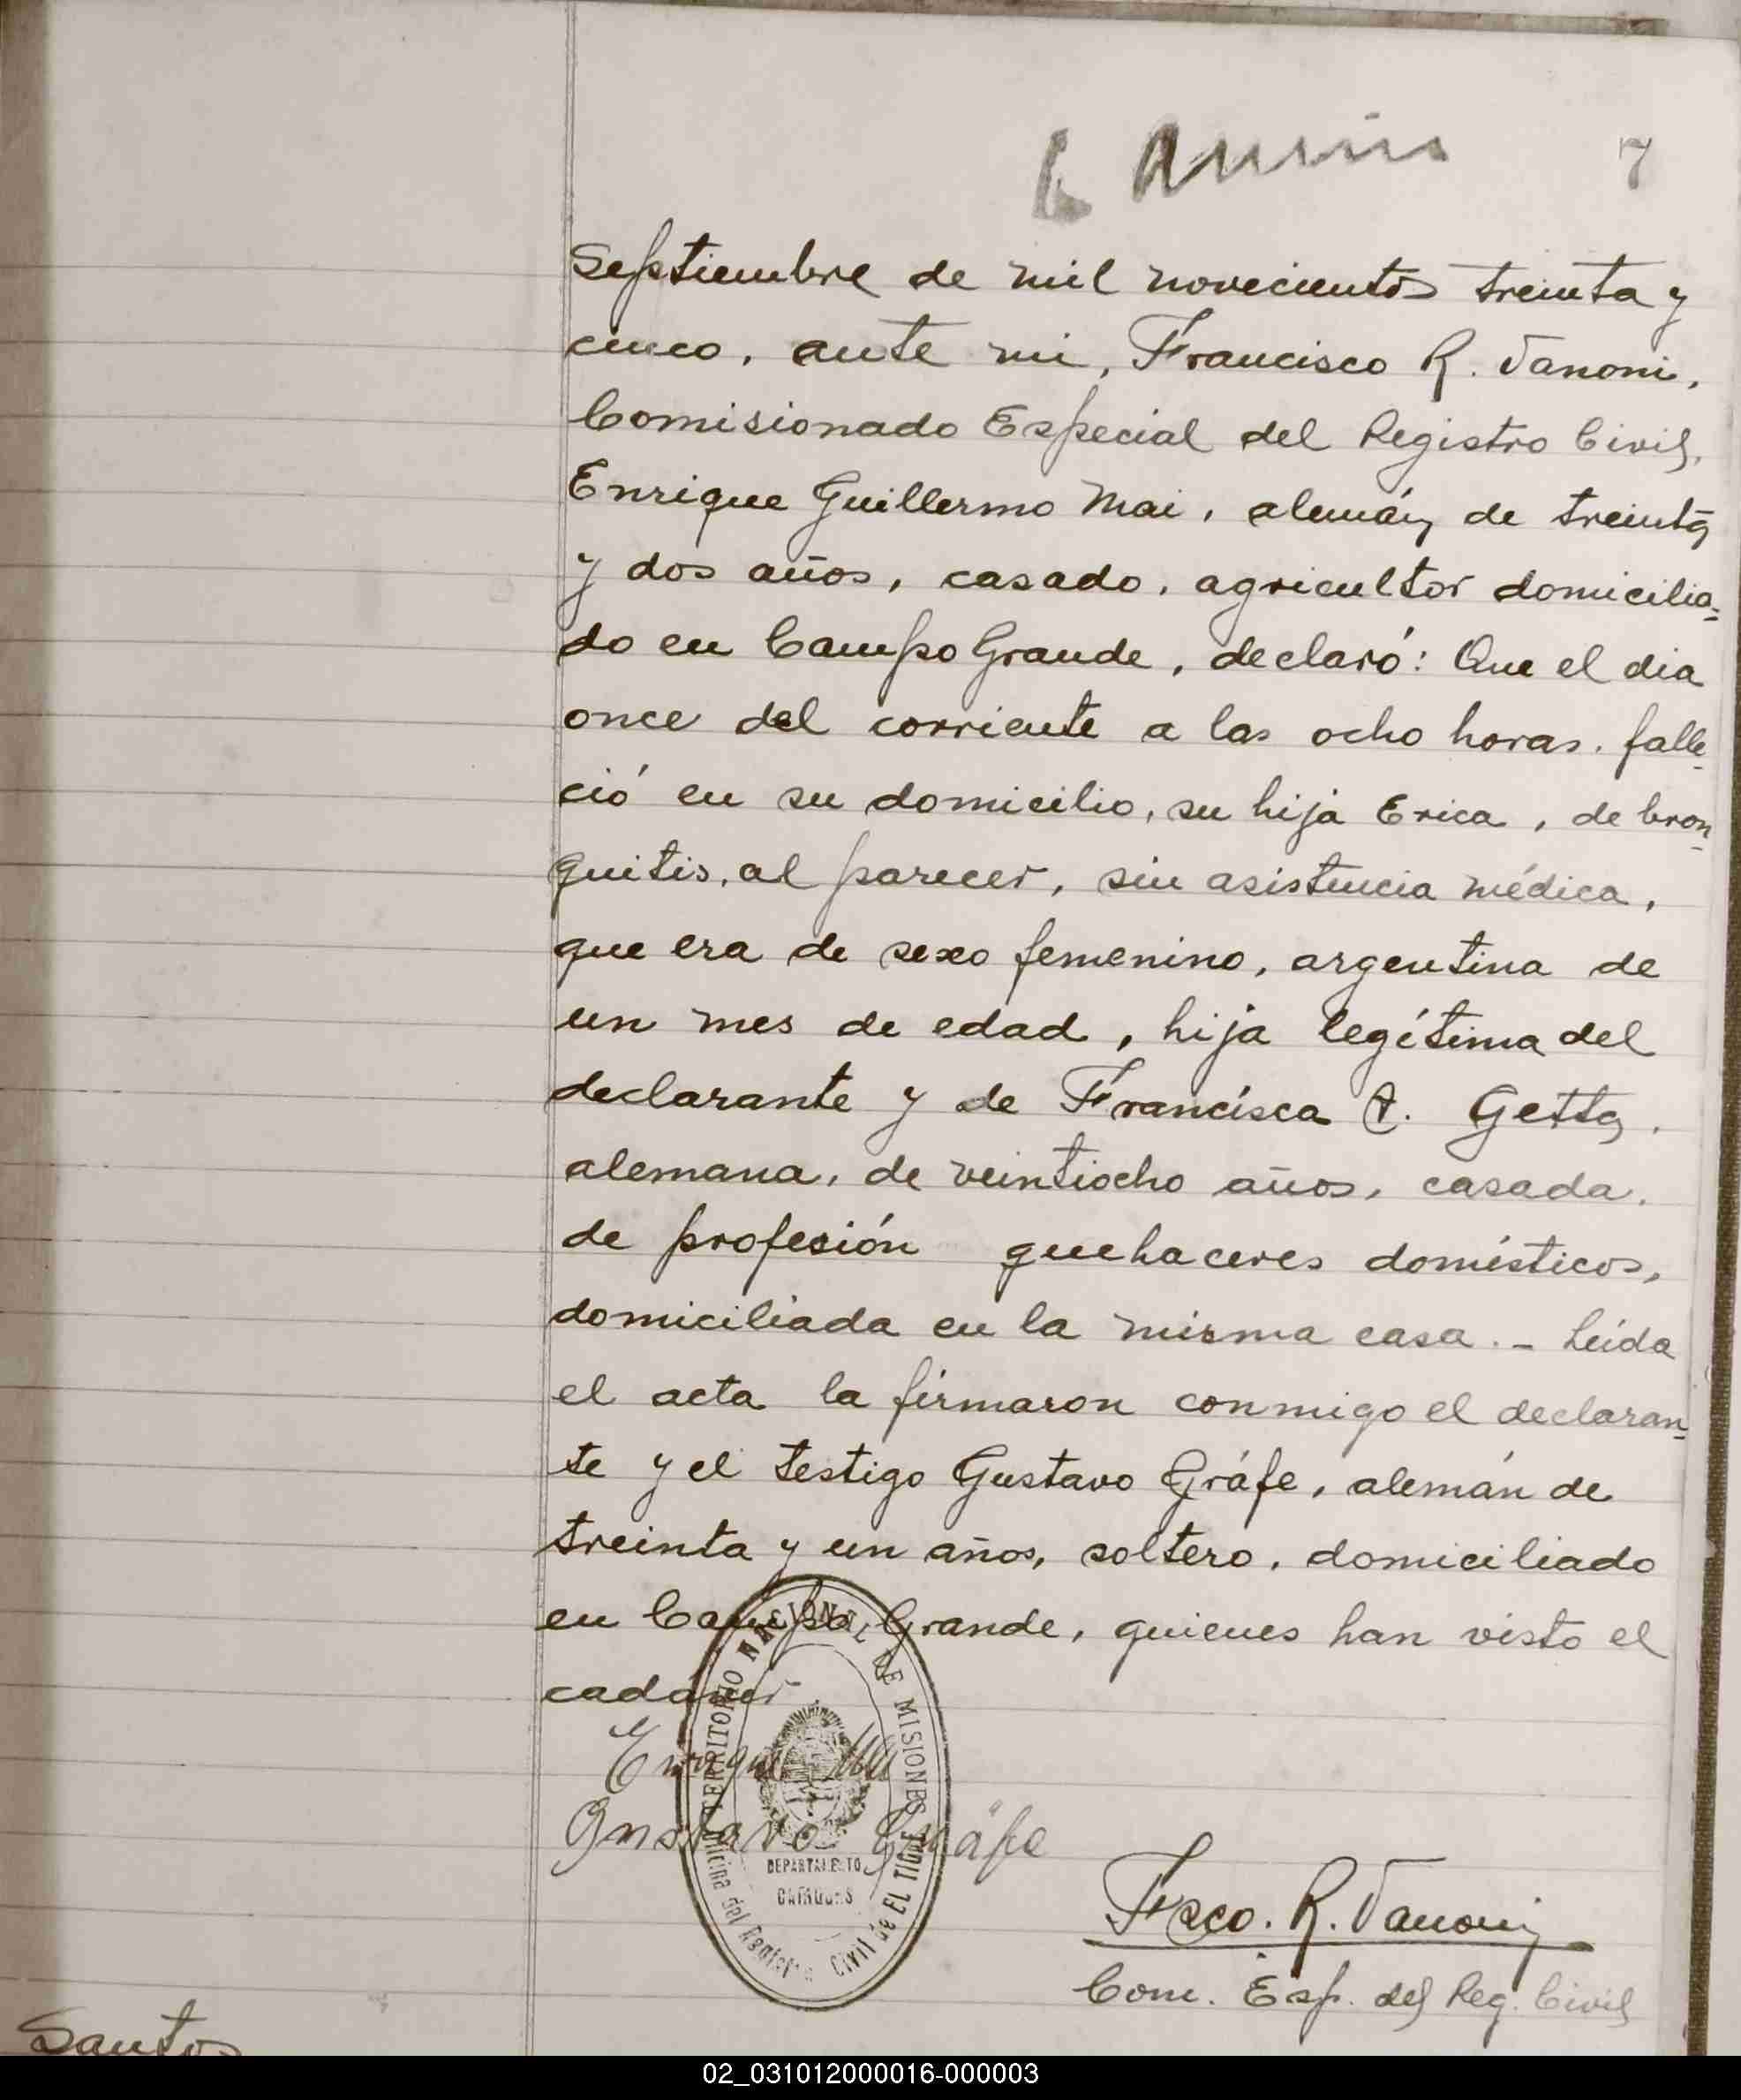 7
Septiembre de mil novecientos treinta y
cinco, ante mi, Francisco R. Vanoni,
Comisionado Especial del Registro Civil,
Enrique Guillermo Mai, alemán, de treinta
y dos años, casado, agricultor domicilia-
do en Campo Grande, declaró: Que el dia
once del corriente a las ocho horas, falle-
ció en su domicilio, su hija Erica, de bron-
quitis, al parecer, sin asistencia médica,
que era de sexo femenino, argentina de
un mes de edad, hija legítima del
declarante y de Francisca Getta,
alemana, de veintiocho años, casada,
de profesión quehaceres domésticos,
domiciliada en la misma casa.- Leida
el acta la firmaron conmigo el declaran-
te y el testigo Gustavo Gräfe, alemán de
treinta y un años, soltero, domiciliado
en Campo Grande, quienes han visto el
cadáver
Enrique Mai
Gustavo Gräfe
TERRITORIO NACIONAL DE MISIONES
DEPARTAMENTO
CAINGUAS
Oficina del Registro Civil de EL TIGRE
Fsco. R. Vanoni
Com. Esp. del Reg. Civil
Santos
02_031012000016-000003